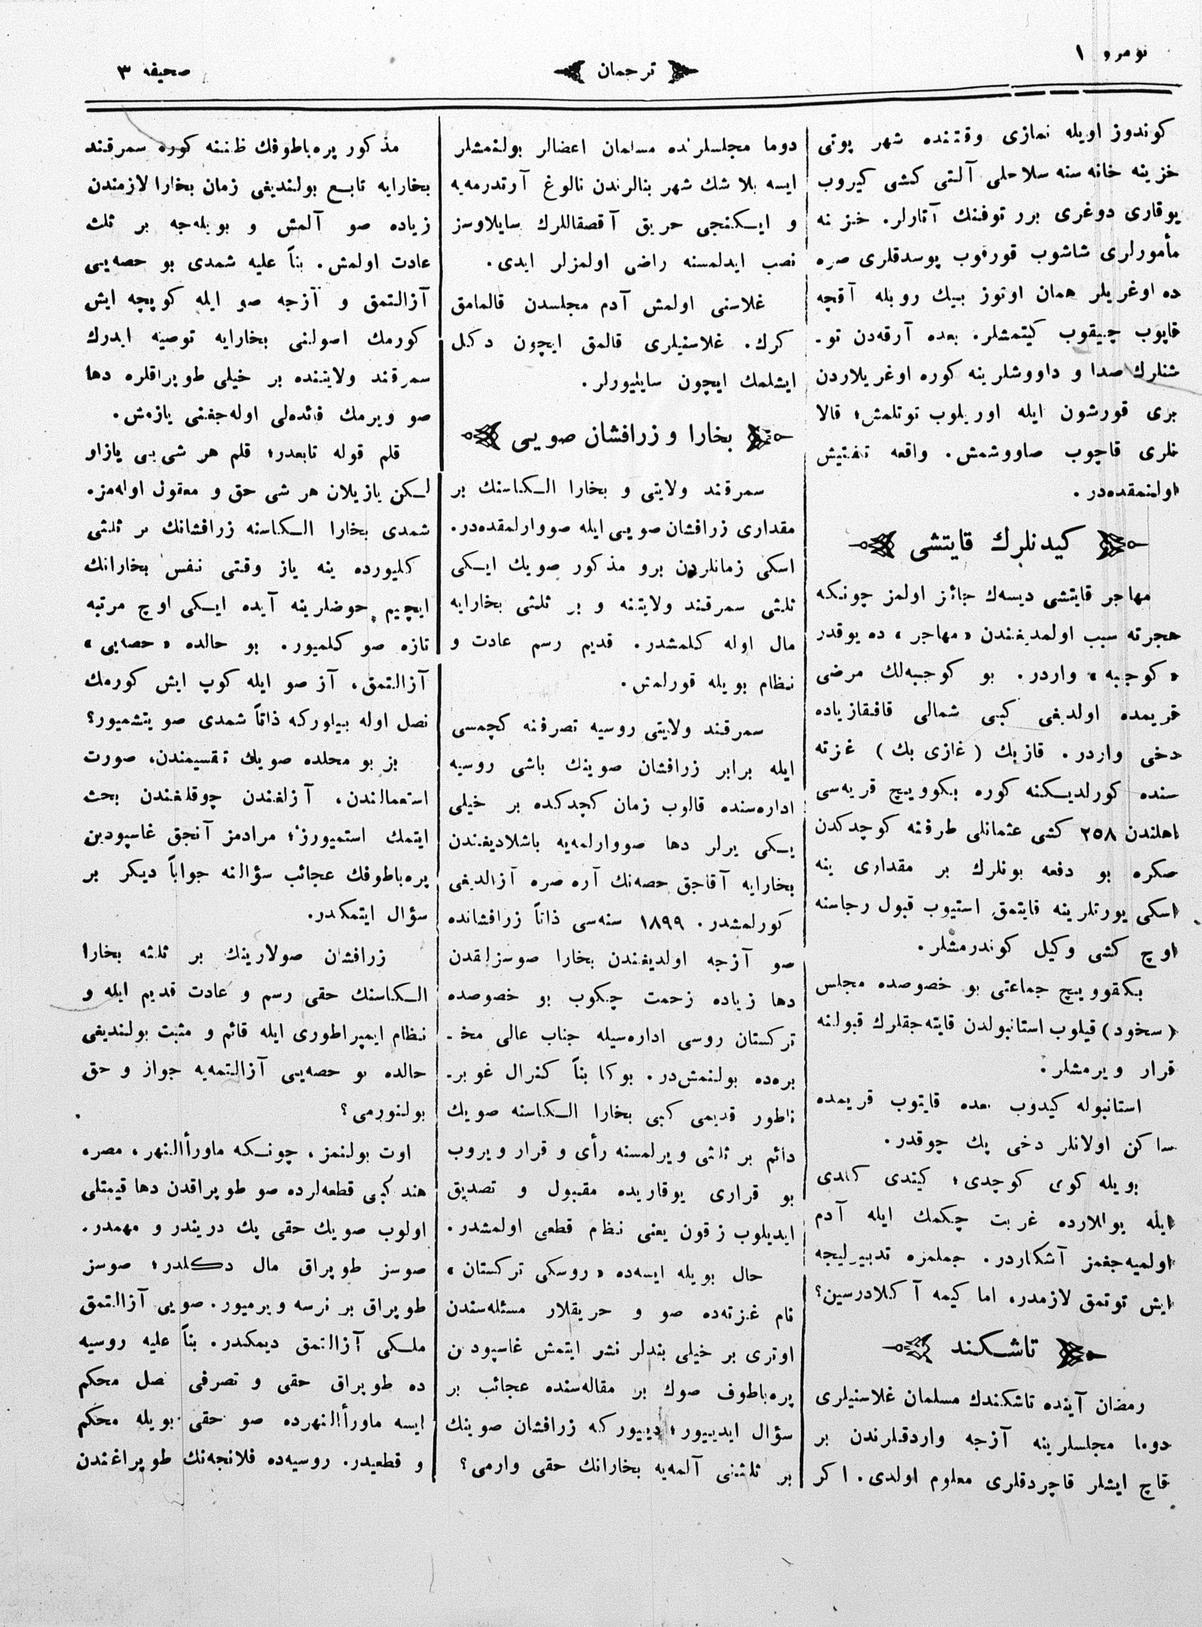 نومرو ١
ترجمان
صحیفه ٣
كوندوز اویله نمازی وقتنده شهر پوتی
خزینه خانه سنه سلاحلی آلتی كشی كیروب
یوقاری دوغری برر توفنك آتارلر. خزنه
مأمورلری شاشوب قورقوب پوسدقلری صره
ده اوغریلر همان اوتوز بیك روبله آقچه
قاپوب چیقوب كیتمشلر. بعده آرقه‌دن تو-
شنلرك صدا و داووشلرینه كوره اوغریلاردن
بری قورشون ایله اوریلوب توتلمش؛ قالا
نلری قاچوب صاووشمش. واقعه تفتیش
اولنمقده‌در.
كیدنلرك قایتشی
مهاجر قایتشی دیسه‌ك جائز اولمز چونكه
هجرته سبب اولمدیغندن «مهاجر» ده یوقدر
«كوچبه» واردر. بو كوچبه‌لك مرضی
قریمده اولدیغی كبی شمالی قافقازیاده
دخی واردر. قازبك (غازی بك) غزته
سنده كورلدیكنه كوره بكوویچ قریه‌سی
اهلندن ٢٥٨ كشی عثمانلی طرفنه كوچدكدن
صكره بو دفعه بونلرك بر مقداری ینه
اسكی یورتلرینه قایتمق استیوب قبول رجاسنه
اوچ كشی وكیل كوندرمشلر.
بكقوویچ جماعتی بو خصوصده مجلس
(سخود) قیلوب استانبولدن قایته‌جقلرك قبولنه
قرار ویرمشلر.
استانبوله كیدوب بعده قایتوب قریمده
ساكن اولانلر دخی پك چوقدر.
بویله كوی كوچدی؛ كیتدی كلدی
ایله یوللارده غربت چكمك ایله آدم
اولمیه‌جغمز آشكاردر. جمله‌مزه تدبیرلیجه
ایش توتمق لازمدر، اما كیمه آكلادرسین؟
تاشكند
رمضان آینده تاشكندك مسلمان غلاسنیلری
دوما مجلسلرینه آزجه واردقلرندن بر
قاچ ایشلر قاچردقلری معلوم اولدی. اكر
دوما مجلسلرنده مسلمان اعضالر بولنمشلر
ایسه بلا شك شهر بنالرندن نالوغ آرتدرمه‌یه
و ایكنجی حریق آقصقاللرك سایلاوسز
نصب ایدلمسنه راضی اولمزلر ایدی.
غلاسنی اولمش آدم مجلسدن قالمامق
كرك. غلاسنیلری قالمق ایچون دكل
ایشلمك ایچون سایلیورلر.
بخارا و زرافشان صویی
سمرقند ولایتی و بخارا الكاسنك بر
مقداری زرافشان صویی ایله صووارلمقده‌در.
اسكی زمانلردن برو مذكور صویك ایكی
ثلثی سمرقند ولایتنه و بر ثلثی بخارایه
مال اوله كلمشدر. قدیم رسم عادت و
نظام بویله قورلمش.
سمرقند ولایتی روسیه تصرفنه كچمسی
ایله برابر زرافشان صوینك باشی روسیه
اداره‌سنده قالوب زمان كچدكده بر خیلی
یكی یرلر دها صووارلمه‌یه باشلادیغندن
بخارایه آقاجق حصه‌نك آره صره آزالدیغی
كورلمشدر. ١٨٩٩ سنه‌سی ذاتاً زرافشانده
صو آزجه اولدیغندن بخارا صوسزلقدن
دها زیاده زحمت چكوب بو خصوصده
تركستان روسی اداره‌سیله جناب عالی مخ-
بره‌ده بولنمش‌در. بوكا بناً كنرال غوبر-
ناطور قدیمی كبی بخارا الكاسنه صویك
دائم بر ثلثی ویرلمسنه رأی و قرار ویروب
بو قراری یوقاریده مقبول و تصدیق
ایدیلوب زقون یعنی نظام قطعی اولمشدر.
حال بویله ایسه‌ده «روسكی تركستان»
نام غزته‌ده صو و حریقلار مسئله‌سندن
اوتری بر خیلی بندلر نشر ایتمش غاسپودین
پره‌باطوف صوك بر مقاله‌سنده عجائب بر
سؤال ایدیور؛ دییوركه زرافشان صوینك
بر ثلثنی آلمه‌یه بخارانك حقی وارمی؟
مذكور پره‌باطوفك ظننه كوره سمرقند
بخارایه تابع بولندیغی زمان بخارا لازمندن
زیاده صو آلمش و بویله‌جه بر ثلث
عادت اولمش. بناً علیه شمدی بو حصه‌یی
آزالتمق و آزجه صو ایله كوپچه ایش
كورمك اصولنی بخارایه توصیه ایدرك
سمرقند ولایتنده بر خیلی طوپراقلره دها
صو ویرمك فائده‌لی اوله‌جغنی یازمش.
قلم قوله تابعدر؛ قلم هر شی‌یی یازار
لكن یازیلان هر شی حق و معقول اوله‌مز.
شمدی بخارا الكاسنه زرافشانك بر ثلثی
كلیورده ینه یاز وقتی نفس بخارانك
ایچیم حوضلرینه آیده ایكی اوچ مرتبه
تازه صو كلمیور. بو حالده «حصه‌یی»
آزالتمق، آز صو ایله كوپ ایش كورمك
نصل اوله بیلوركه ذاتاً شمدی صو یتشمیور؟
بز بو محلده صویك تقسیمندن، صورت
استعمالندن، آزلغندن چوقلغندن بحث
ایتمك استمیورز؛ مرادمز آنجق غاسپودین
پره‌باطوفك عجائب سؤالنه جواباً دیكر بر
سؤال ایتمكدر.
زرافشان صولارینك بر ثلثه بخارا
الكاسنك حقی رسم و عادت قدیم ایله و
نظام ایمپراطوری ایله قائم و مثبت بولندیغی
حالده بو حصه‌یی آزالتمه‌یه جواز و حق
بولنورمی؟
اوت بولنمز، چونكه ماورأالنهر، مصر،
هند كبی قطعه‌لرده صو طوپراقدن دها قیمتلی
اولوب صویك حقی پك دریندر و مهمدر.
صوسز طوپراق مال دكلدر؛ صوسز
طوپراق بر نرسه ویرمیور. صویی آزالتمق
ملكی آزالتمق دیمكدر. بناً علیه روسیه
ده طوپراق حقی و تصرفی نصل محكم
ایسه ماورأالنهرده صو حقی بویله محكم
و قطعیدر. روسیه‌ده فلانجه‌نك طوپراغندن